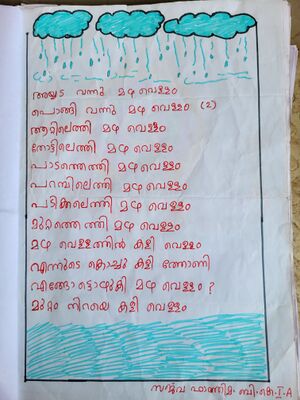 അയ്യട വന്നു മഴ വെള്ളം
പൊങ്ങി വന്നു മഴ വെള്ളം (2)
ആറ്റിലെത്തി മഴ വെള്ളം
തോട്ടിലെത്തി മഴ വെള്ളം
പാടത്തെത്തി മഴ വെള്ളം
പറമ്പിലെത്തി മഴ വെള്ളം
പടിക്കലെത്തി മഴ വെള്ളം
മുറ്റത്തെത്തി മഴ വെള്ളം
മഴ വെള്ളത്തിൽ കളി വെള്ളം
എന്നുടെ കൊച്ചു കളി ത്തോണി
എങ്ങോട്ടൊഴുകി മഴ വെള്ളം ?
മുറ്റം നിറയെ കളി വെള്ളം
ഫാത്തിമ. ബി. കെ. I. A